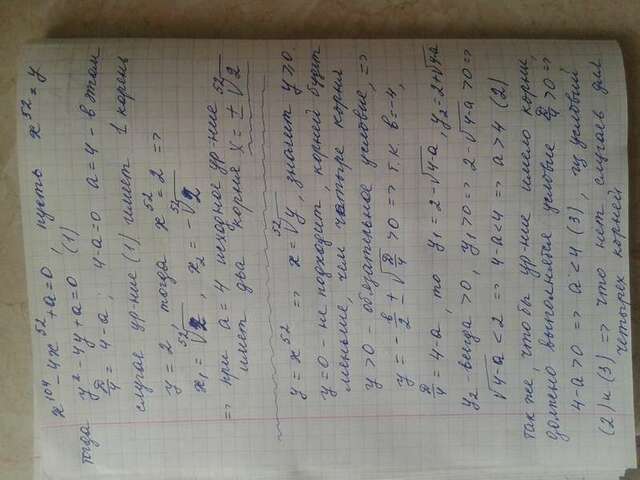 x¹⁰⁴ - 4x⁵² + a = 0, пусть x⁵² = y
тогда y² - 4y + a = 0 (1)
D/4 = 4 - a, 4 - a = 0 a = 4 - в этом
случае ур-ние (1) имеет 1 корень
y = 2 тогда x⁵² = 2 =>
x₁ = ⁵²√2, x₂ = -⁵²√2
=> при a = 4 исходное ур-ние
имет два корня x = ± ⁵²√2
y = x⁵² => x = ⁵²√y, значит y ≥ 0.
y = 0 - не подходит, корней будет
меньше, чем четыре корня
y > 0 - обязательное условие, =>
y = -b/2 ± √D/4 > 0 => т.к b = -4,
D/4 = 4 - a, то y₁ = 2 - √4-a, y₂ = 2 + √4-a
y₂ - всегда > 0, y₁ > 0 => 2 - √4-a > 0 =>
√4-a < 2 => 4 - a < 4 => a > 4 (2)
так же, чтобы ур-ние имело корни,
должно выполнятся условие D/4 > 0 =>
4 - a > 0 => a < 4 (3), из условий
(2) и (3) => что нет случаев для
четырех корней